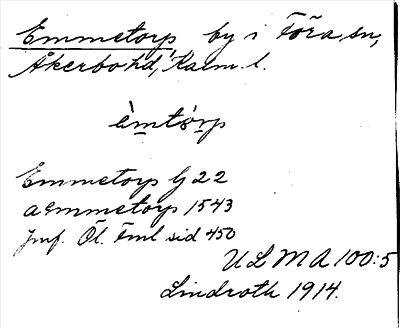 Emmetorp by i Föra sn,
Åkerbo hd, Kalm. l.
èmtórp
Emmetorp G 22
aemmetorp 1543
Jmf. Öl. Fml sid 450
ULMA 100:5
Lindroth 1914.